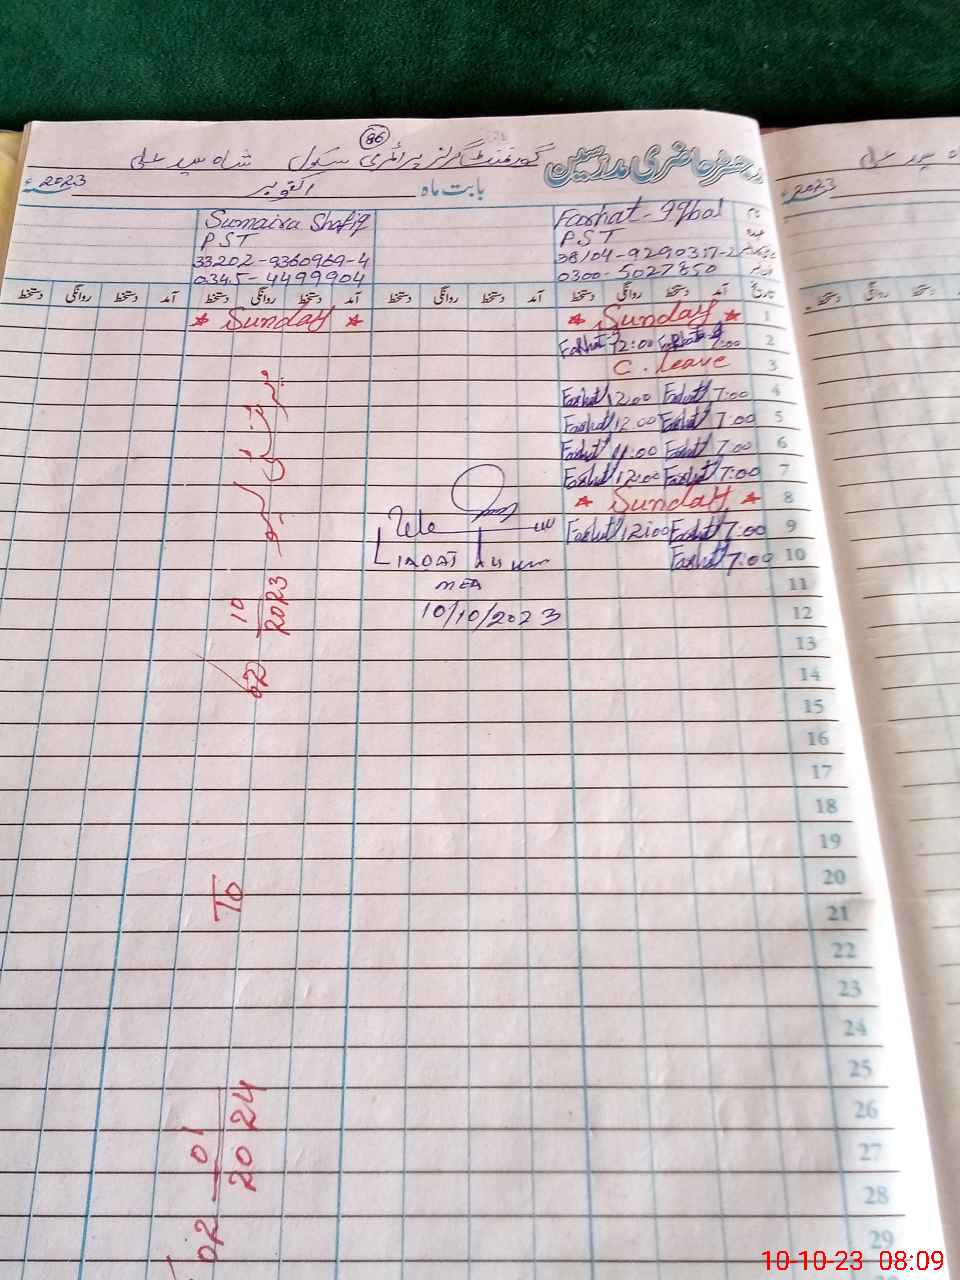 86
رجسٹر حاضری مدرسین گورنمنٹ گرلز پرائمری سکول شاہ سید علی
بابت ماہ اکتوبر 2023ء
Farhat Iqbal
PST
0300-5027850
Sumaira Shafiq
PST
33202-9360969-4
0345-4499904
تاریخ آمد دستخط روانگی دستخط آمد دستخط روانگی دستخط آمد دستخط روانگی دستخط آمد دستخط روانگی دستخط
1 * Sunday * * Sunday *
2 7:00 Farhat 12:00 Farhat
3 C. Leave
4 7:00 Farhat 12:00 Farhat
5 7:00 Farhat 12:00 Farhat
6 7:00 Farhat Farhat
7 7:00 Farhat 12:00 Farhat
8 * Sunday *
9 7:00 Farhat 12:00 Farhat
10 7:00 Farhat
11
12
13
14
15
16
17
18
19
20
21
22
23
24
25
26
27
28
29
MEA
10/10/2023
02 10/2023
To
02 01/2024
2023ء
دستخط روانگی دستخط
10-10-23 08:09